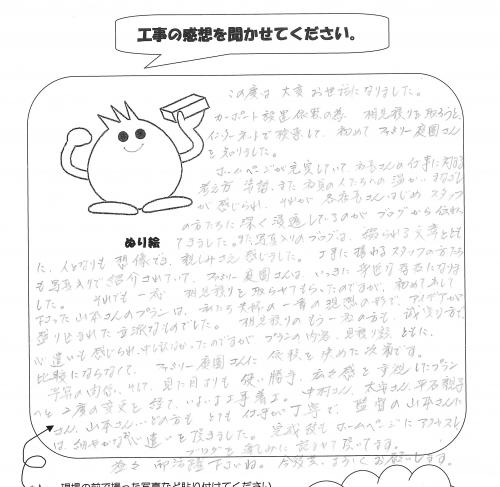 工事の感想を聞かせてください。
この度は大変お世話になりました。
カーポート設置依頼の為、相見積りを取ろうと、
インターネットで検索して、初めてファミリー庭園さん
を知りました。
ホームページが充実していて、社長さんの仕事に対する
考え方、また社員の人たちへの温かいまなざし
が感じられ、それが各店長さんはじめ、スタッフ
の方たちに深く浸透しているのがブログから伝わっ
てきました。また写真入りのブログは、綴られる文章ととも
ぬり絵
に、人となりも想像でき、親しみさえ感じました。工事に携わるスタッフの方たち
も写真入りで紹介されていて、ファミリー庭園さんは、いっきに身近な存在になりま
した。それでも一応相見積りを取らせてもらったのですが、初めてお会い
した山本さんのプランは、私たち夫婦の一番の理想の形で、アイデアが
盛り込まれた立派なものでした。相見積りのもう一者の方も、誠実な方で
心遣いも感じられ、申し訳なかったのですが、プランの内容、見積り額ともに、
比較にならなくて、ファミリー庭園さんに依頼を決めた次第です。
予算の関係、そして、見た目よりも使い勝手、広さ感を重視したプラン
へと2度の変更を経て、いよいよ工事着工。中村さん、大寺さん、平石親子
さん、山本さん…どの方もとても仕事が丁寧で、監督の山本さんに
は細やかな気遣いを頂きました。完成後もホームページにアクセスし
ブログを楽しみに読ませて頂いてます。
益々御活躍下さいね。今後共、よろしくお願いします。
現場の前で撮った写真など貼り付けてください